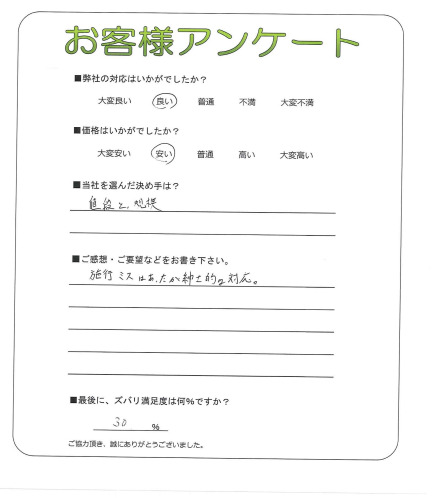 お客様アンケート
■弊社の対応はいかがでしたか？
大変良い 良い 普通 不満 大変不満
■価格はいかがでしたか？
大変安い 安い 普通 高い 大変高い
■当社を選んだ決め手は？
値段と、規模
■ご感想・ご要望などをお書き下さい。
施行ミスはあったが紳士的な対応。
■最後に、ズバリ満足度は何％ですか？
30 ％
ご協力頂き、誠にありがとうございました。